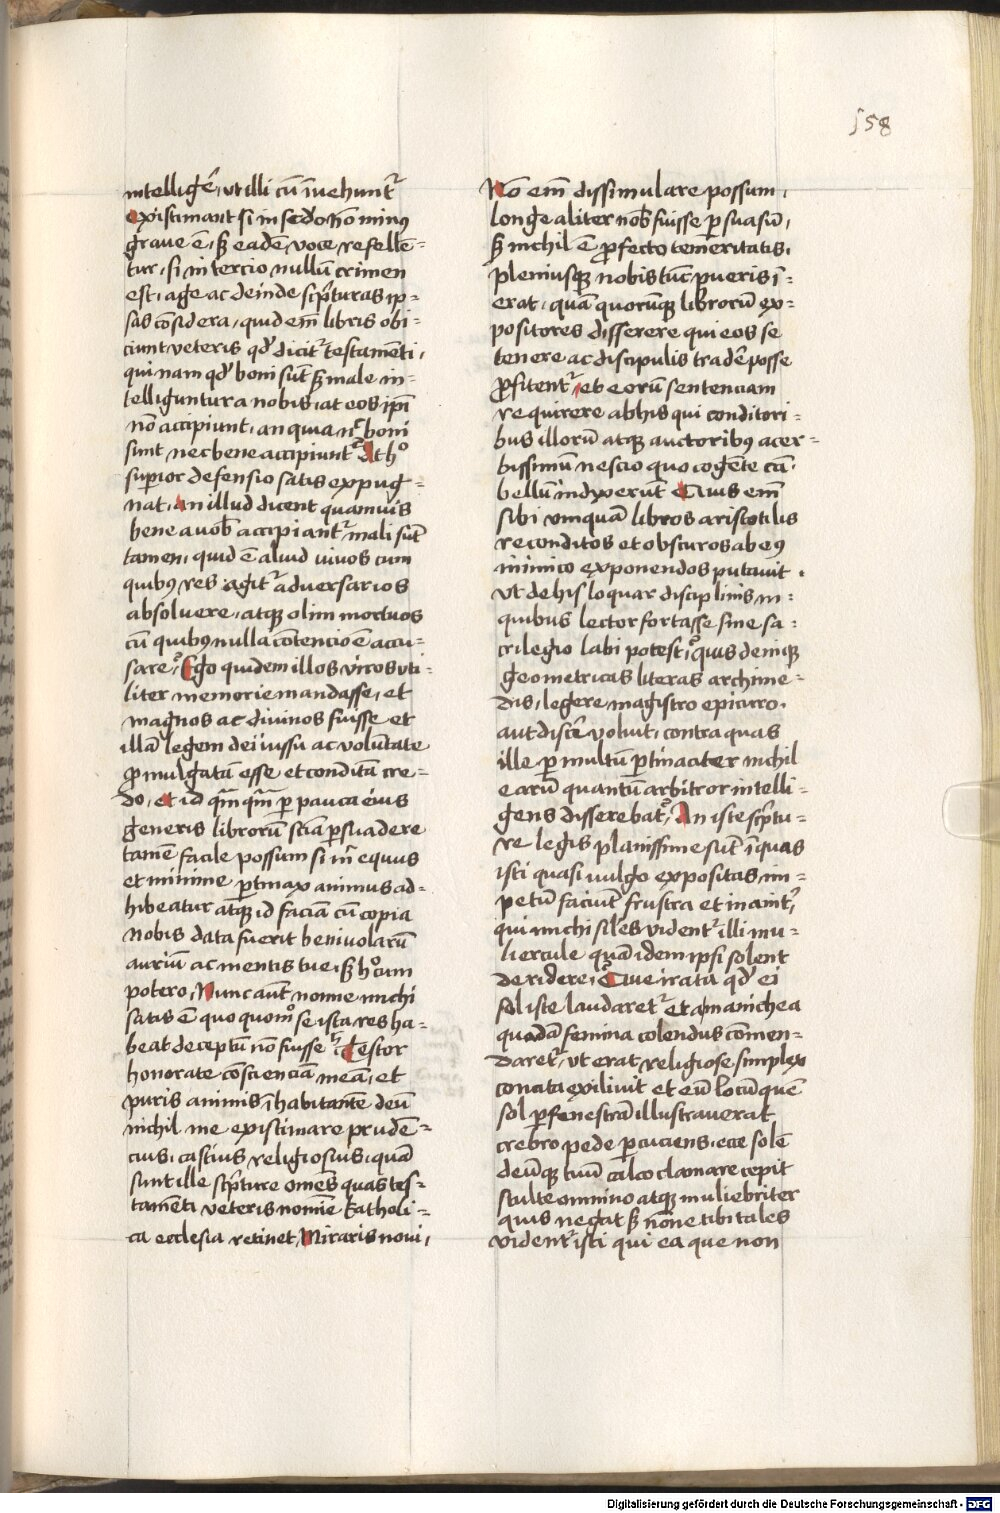 158
intelligēr, ut illi cū īuehunt᷑
existimant si in scdo nō minus
graue ē, sꝫ eadē voce refellē-
tur, si in tercio nullū crimen
est, age ac deinde sc̄pturas ip-
sas cōsidera, quid em̄ libris obi-
ciunt, veteris qd̓ dicit᷑ testamēti,
qui nam qd̓ boni sūt sꝫ male in-
telliguntur a nobis, at eos ip̄i
nō accipiunt, an quia nc̄ boni
sunt nec bene accipiunt᷑ At hͦ
superior defensio satis expug-
nat, An illud dicent quamuis
bene a vob̄ accipiant᷑ mali sūt
tamen, quid ē aliud viuos cum
quibꝰ res agit᷑ aduersarios
absoluere, atqꝫ olim mortuos
cū quibꝰ nulla cōtencio ē accu-
sare, Ego quidem illos viros uti-
liter memorie mandasse, et
magnos ac diuinos fuisse et
illā legem dei iussu ac volūtate
ꝓmulgatā esse et conditā cre-
do, et id qm̄qm̄ per pauca eius
generis librorū sc̄ia ꝑsuadere
tamē facile possum si m̄ equus
et minime ꝑtinax animus ad-
hibeatur atqꝫ id faciā cū copia
nobis data fuerit beniuolarū
auriū ac mentis tue, sꝫ hͦ cum
potero, Nunc aūt nonne michi
satis ē quo quomͦ se ista res ha-
beat deceptū nō fuisse Testor
honorate cōscienciā meā, et
puris animis īhabitantē deū
nichil me existimare prudē-
cius, castius religiosius, quā
sunt ille sc̄pture om̄es quas tes-
tamēti veteris nomīe katholi-
ca ecclesia retinet, Miraris noui,
Nō em̄ dissimulare possum,
longe aliter nob̄ fuisse ꝑsuasū,
sꝫ nichil ē ꝓfecto temeritatis,
pleniusqꝫ nobis tūc pueris ī-
erat, quā quorūqꝫ librorū ex-
positores disserere qui eos se
tenere ac discipulis tradēr posse
ꝓfitent᷑, et eorū sentenciam
requirere ab his qui conditori-
bus illorū atqꝫ auctoribꝰ acer-
bissimū nescio quo cogēte cā
bellū indixerūt Quis em̄
sibi vmquā libros aristotilis
reconditos et obscuros ab eꝰ
inimico exponendos putauit,
Ut de his loquar disciplinis in
quibus lector fortasse sine sa-
crilegio labi potest, quis deniqꝫ
geometricas literas archime-
dis, legere magistro epicuro,
aut discēr voluit, contra quas
ille ꝑ multū ꝑtinaciter nichil
earū quantū arbitror intelli-
gens disserebat, An iste sc̄ptu-
re legis planissime sūt ī quas
isti quasi uulgo expositas im-
petū faciūt frustra et inanit᷑,
qui michi sil̄es vident᷑ illi mu-
liercule quā idem ipsi solent
deridere, Que irata qd̓ ei
sol iste laudaret᷑ et a manichea
quadā femina colendus cōmen-
daret᷑, ut erat religiose simplex
concita exiliuit et eū locū quē
sol ꝑ fenestrā illustrauerat
crebro pede ꝑcuciens, ecce solē
deūqꝫ tuū calco clamare cepit
stulte omnino atqꝫ muliebriter
quis negat sꝫ nōne tibi tales
vident᷑ isti qui ea que non
Digitalisierung gefördert durch die Deutsche Forschungsgemeinschaft - DFG